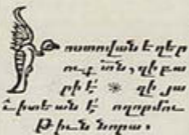 Խոստովան եղեր
ուք տն, զի բա
րի է ※ զի յա
ւիտեան է ողորմու
թիւն նորա։